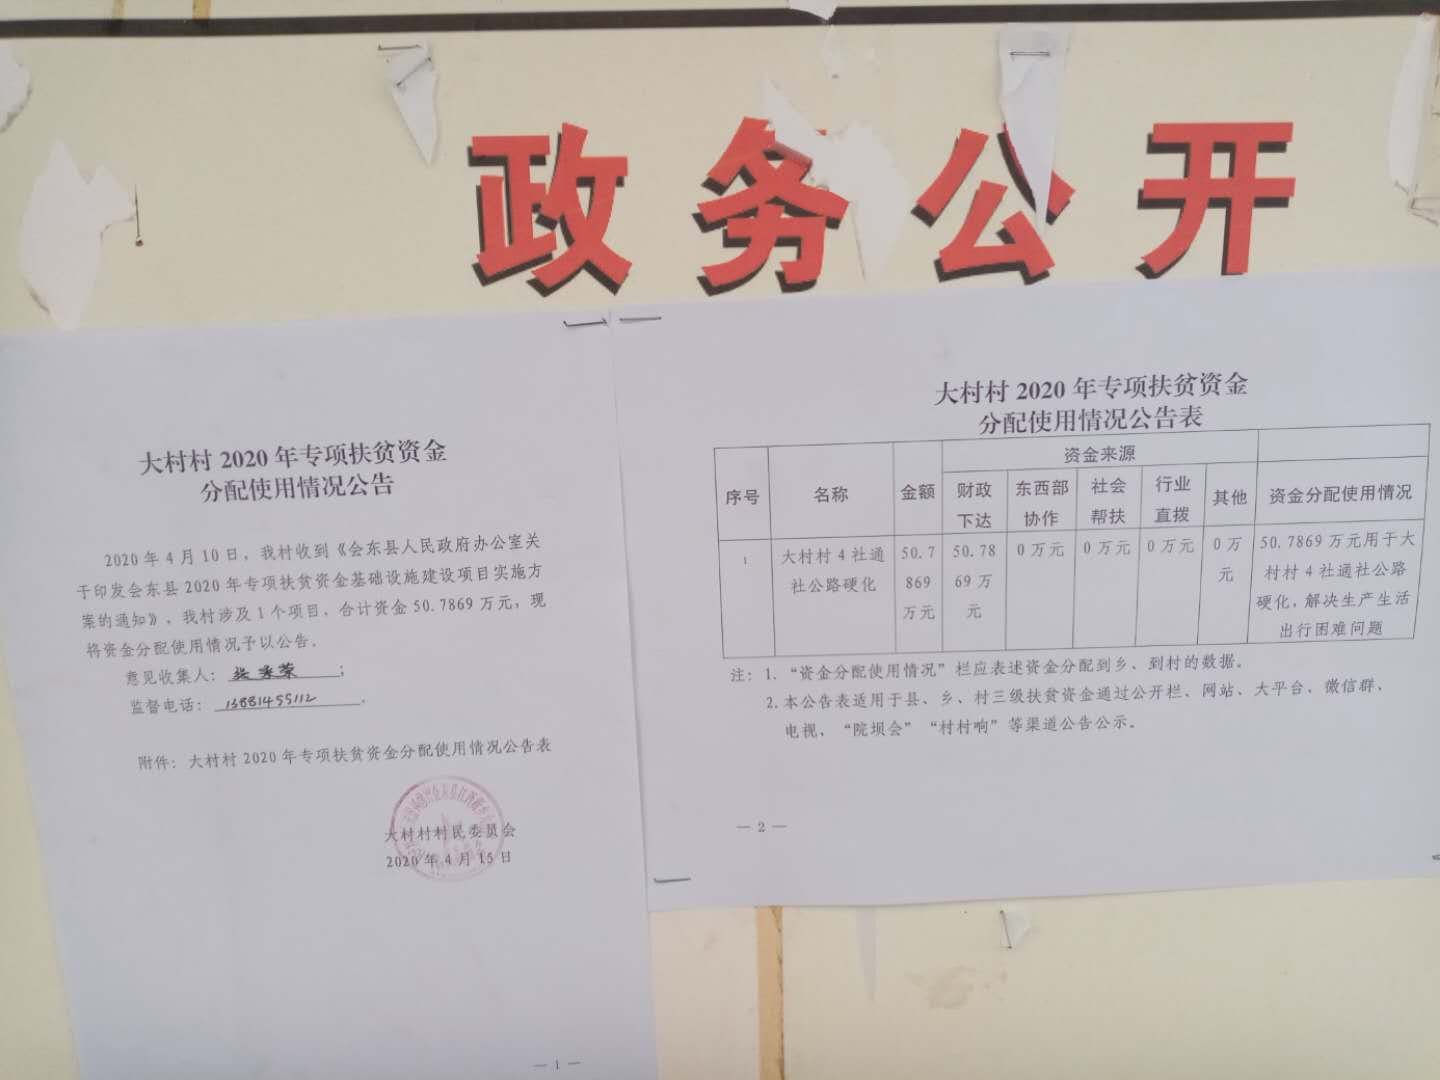 政务公开
大村村 2020 年专项扶贫资金
分配使用情况公告
2020 年 4 月 10 日，我村收到《会东县人民政府办公室关
于印发会东县 2020 年专项扶贫资金基础设施建设项目实施方
案的通知》，我村涉及 1 个项目，合计资金 50.7869 万元，现
将资金分配使用情况予以公告。
意见收集人：
监督电话：13881455112.
附件：大村村 2020 年专项扶贫资金分配使用情况公告表
大村村村民委员会
2020 年 4 月 15 日
— 1 —
大村村 2020 年专项扶贫资金
分配使用情况公告表
资金来源
序号 名称 金额 财政下达 东西部协作 社会帮扶 行业直拨 其他 资金分配使用情况
1 大村村 4 社通社公路硬化 50.7869万元 50.7869万元 0 万元 0 万元 0 万元 0 万元 50.7869 万元用于大村村 4 社通社公路硬化，解决生产生活出行困难问题
注：1. “资金分配使用情况”栏应表述资金分配到乡、到村的数据。
2. 本公告表适用于县、乡、村三级扶贫资金通过公开栏、网站、大平台、微信群、
电视、“院坝会”“村村响”等渠道公告公示。
— 2 —